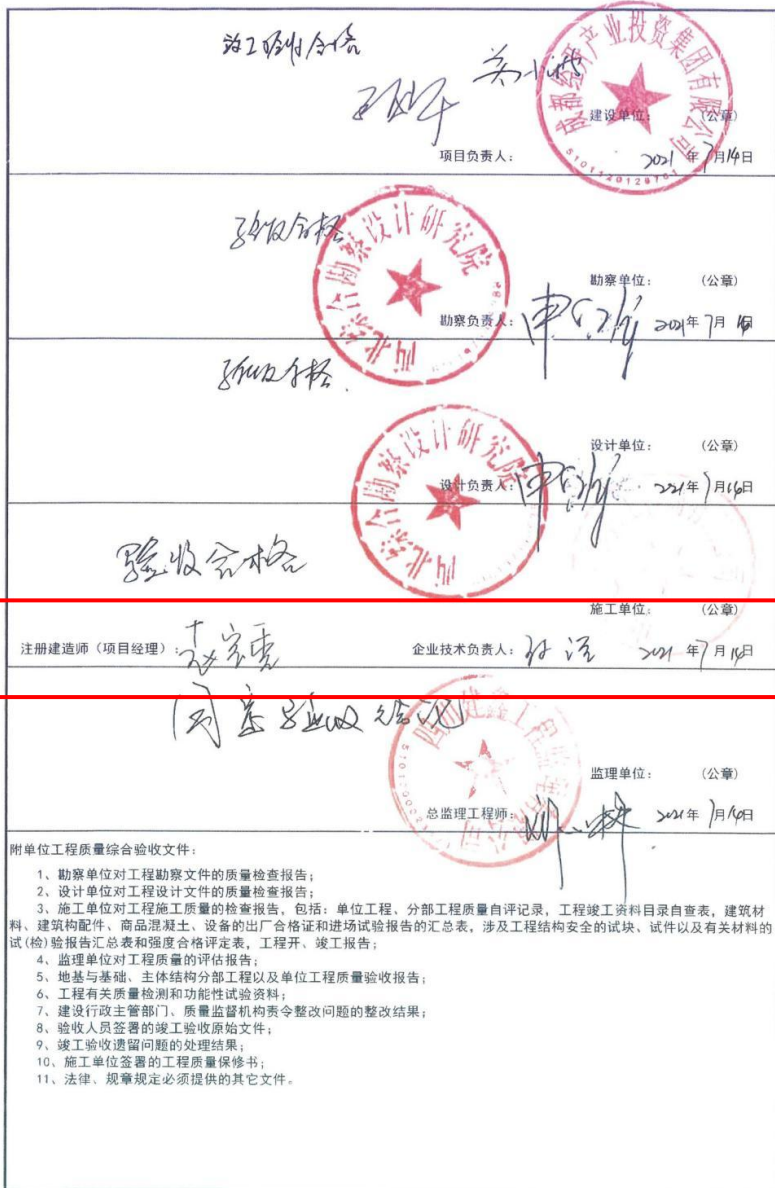 竣工验收合格
成都经开产业投资集团有限公司
建设单位： （公章）
项目负责人： 2021年7月14日
5101120129701
验收合格
西北综合勘察设计研究院
勘察单位： （公章）
勘察负责人： 2021年7月14日
验收合格.
西北综合勘察设计研究院
设计单位： （公章）
设计负责人： 2021年7月14日
验收合格
施工单位： （公章）
注册建造师（项目经理）： 企业技术负责人： 2021年7月14日
同意验收
四川建鑫工程监理有限公司
监理单位： （公章）
总监理工程师： 2021年7月14日
附单位工程质量综合验收文件：
1、勘察单位对工程勘察文件的质量检查报告；
2、设计单位对工程设计文件的质量检查报告；
3、施工单位对工程施工质量的检查报告，包括：单位工程、分部工程质量自评记录，工程竣工资料目录自查表，建筑材
料、建筑构配件、商品混凝土、设备的出厂合格证和进场试验报告的汇总表，涉及工程结构安全的试块、试件以及有关材料的
试(检)验报告汇总表和强度合格评定表，工程开、竣工报告；
4、监理单位对工程质量的评估报告；
5、地基与基础、主体结构分部工程以及单位工程质量验收报告；
6、工程有关质量检测和功能性试验资料；
7、建设行政主管部门、质量监督机构责令整改问题的整改结果；
8、验收人员签署的竣工验收原始文件；
9、竣工验收遗留问题的处理结果；
10、施工单位签署的工程质量保修书；
11、法律、规章规定必须提供的其它文件。